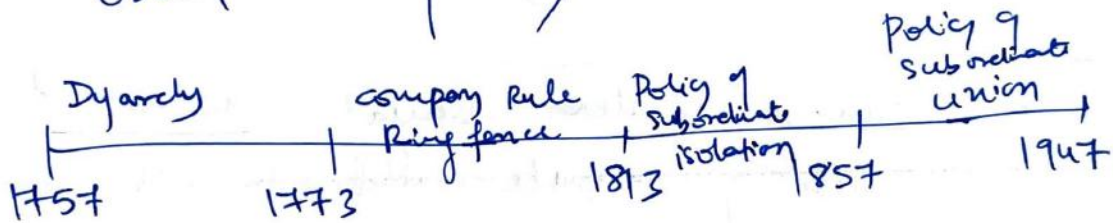 Dyarchy
company Rule
Ring fence
Policy of
subordinate
isolation
Policy of
subordinate
union
1757
1773
1813
1857
1947